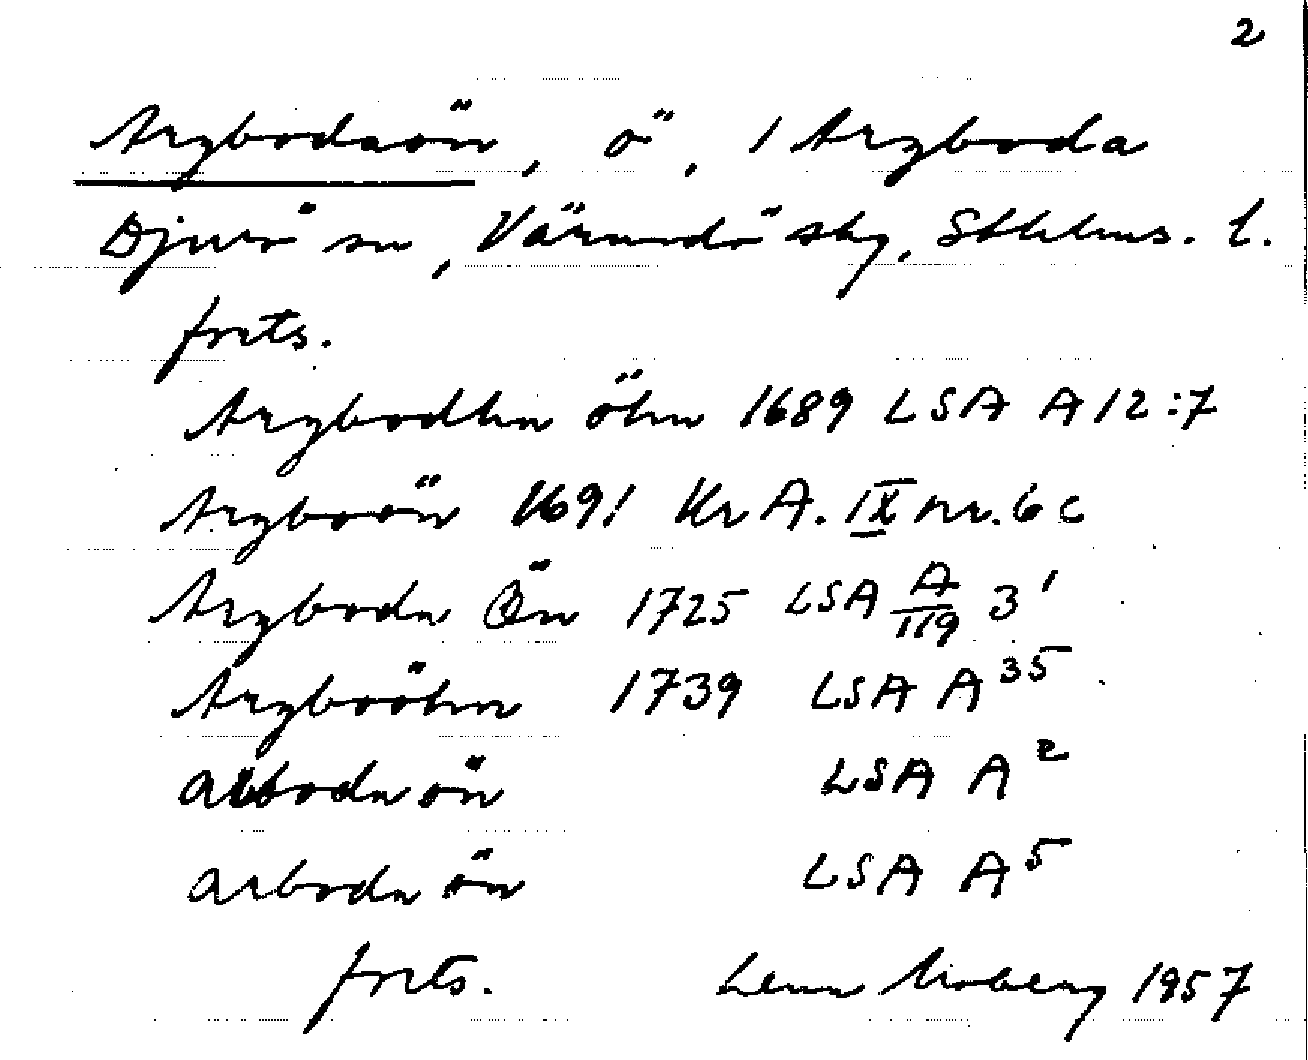 2
Argbodaön, ö, / Argboda
Djurö sn, Värmdö skg, Sthlms. l.
forts.
Argbodhn öhn 1689 LSA A 12:7
Argboön 1691 KrA. IX nr. 6 c
Argboda Ön 1725 LSA A/119 3'
Argboöhn 1739 LSA A 35
Arbodaön LSA A 2
arbodaön LSA A 5
forts. Lena Moberg 1957